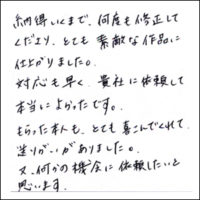 納得いくまで、何度も修正して
くださり、とても素敵な作品に
仕上がりました。
対応も早く、貴社に依頼して
本当によかったです。
もらった本人も、とても喜こんでくれて、
送りがいがありました。
又、何かの機会に依頼したいと
思います。